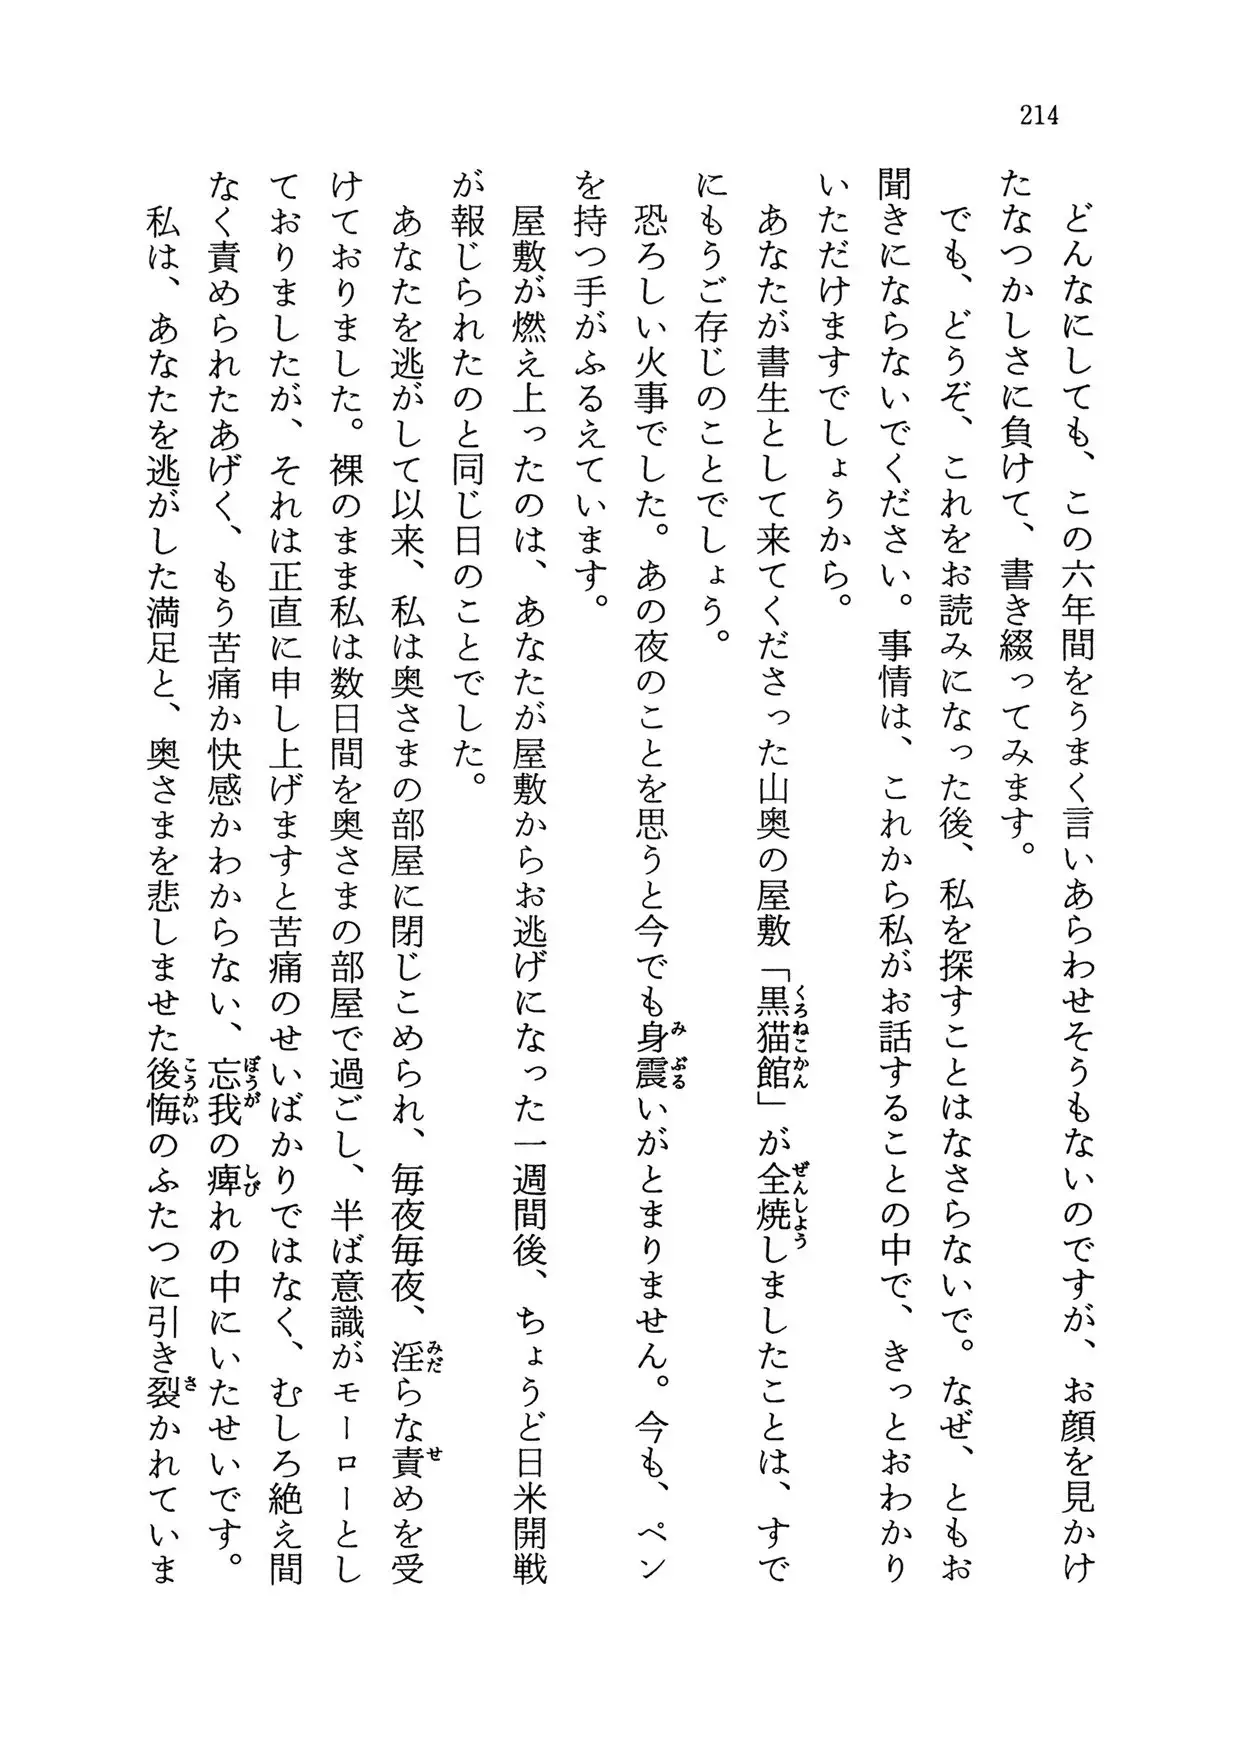 214
どんなにしても、この六年間をうまく言いあらわせそうもないのですが、お顔を見かけ
たなつかしさに負けて、書き綴ってみます。
でも、どうぞ、これをお読みになった後、私を探すことはなさらないで。なぜ、ともお
聞きにならないでください。事情は、これから私がお話することの中で、きっとおわかり
いただけますでしょうから。
あなたが書生として来てくださった山奥の屋敷「黒猫館」が全焼しましたことは、すで
にもうご存じのことでしょう。
恐ろしい火事でした。あの夜のことを思うと今でも身震いがとまりません。今も、ペン
を持つ手がふるえています。
屋敷が燃え上ったのは、あなたが屋敷からお逃げになった一週間後、ちょうど日米開戦
が報じられたのと同じ日のことでした。
あなたを逃がして以来、私は奥さまの部屋に閉じこめられ、毎夜毎夜、淫らな責めを受
けておりました。裸のまま私は数日間を奥さまの部屋で過ごし、半ば意識がモーローとし
ておりましたが、それは正直に申し上げますと苦痛のせいばかりではなく、むしろ絶え間
なく責められたあげく、もう苦痛か快感かわからない、忘我の痺れの中にいたせいです。
私は、あなたを逃がした満足と、奥さまを悲しませた後悔のふたつに引き裂かれていま